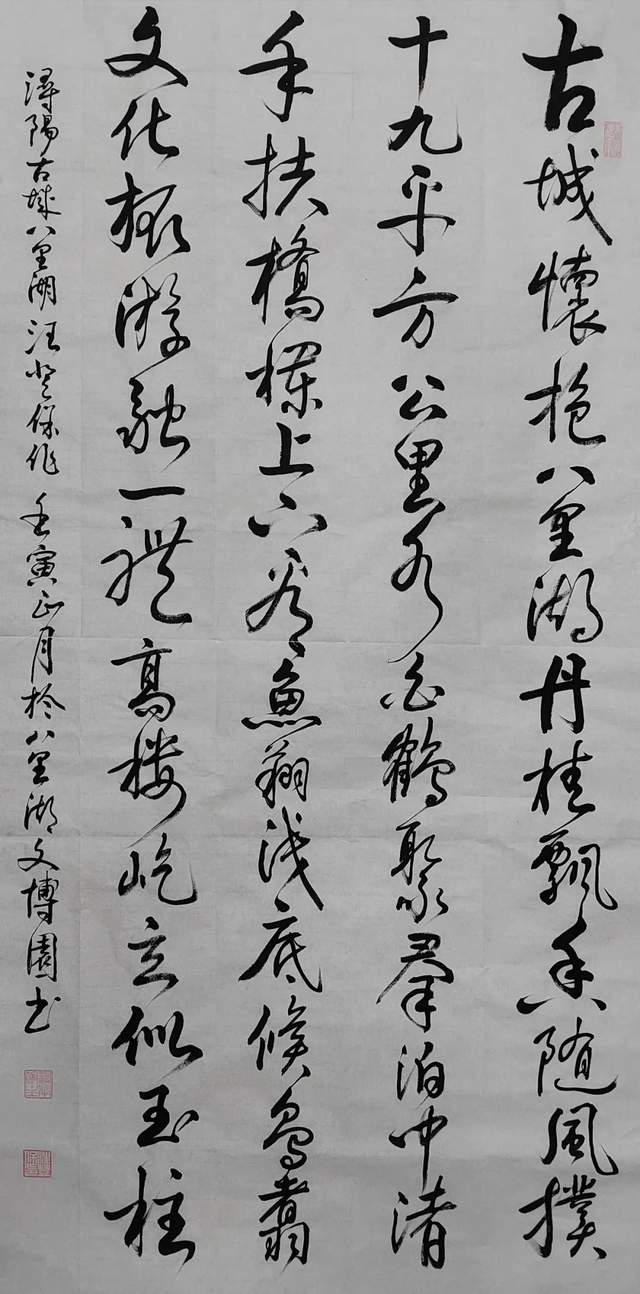 古城懷抱八里湖丹桂飄香随風撲
十九平方公里水白鶴聚羣泊中渚
手扶橋欄上下看魚翔淺底候鳥翥
文化旅游融一體高樓屹立似玉柱
潯陽古城八里湖 汪保作 壬寅正月於八里湖文博園书